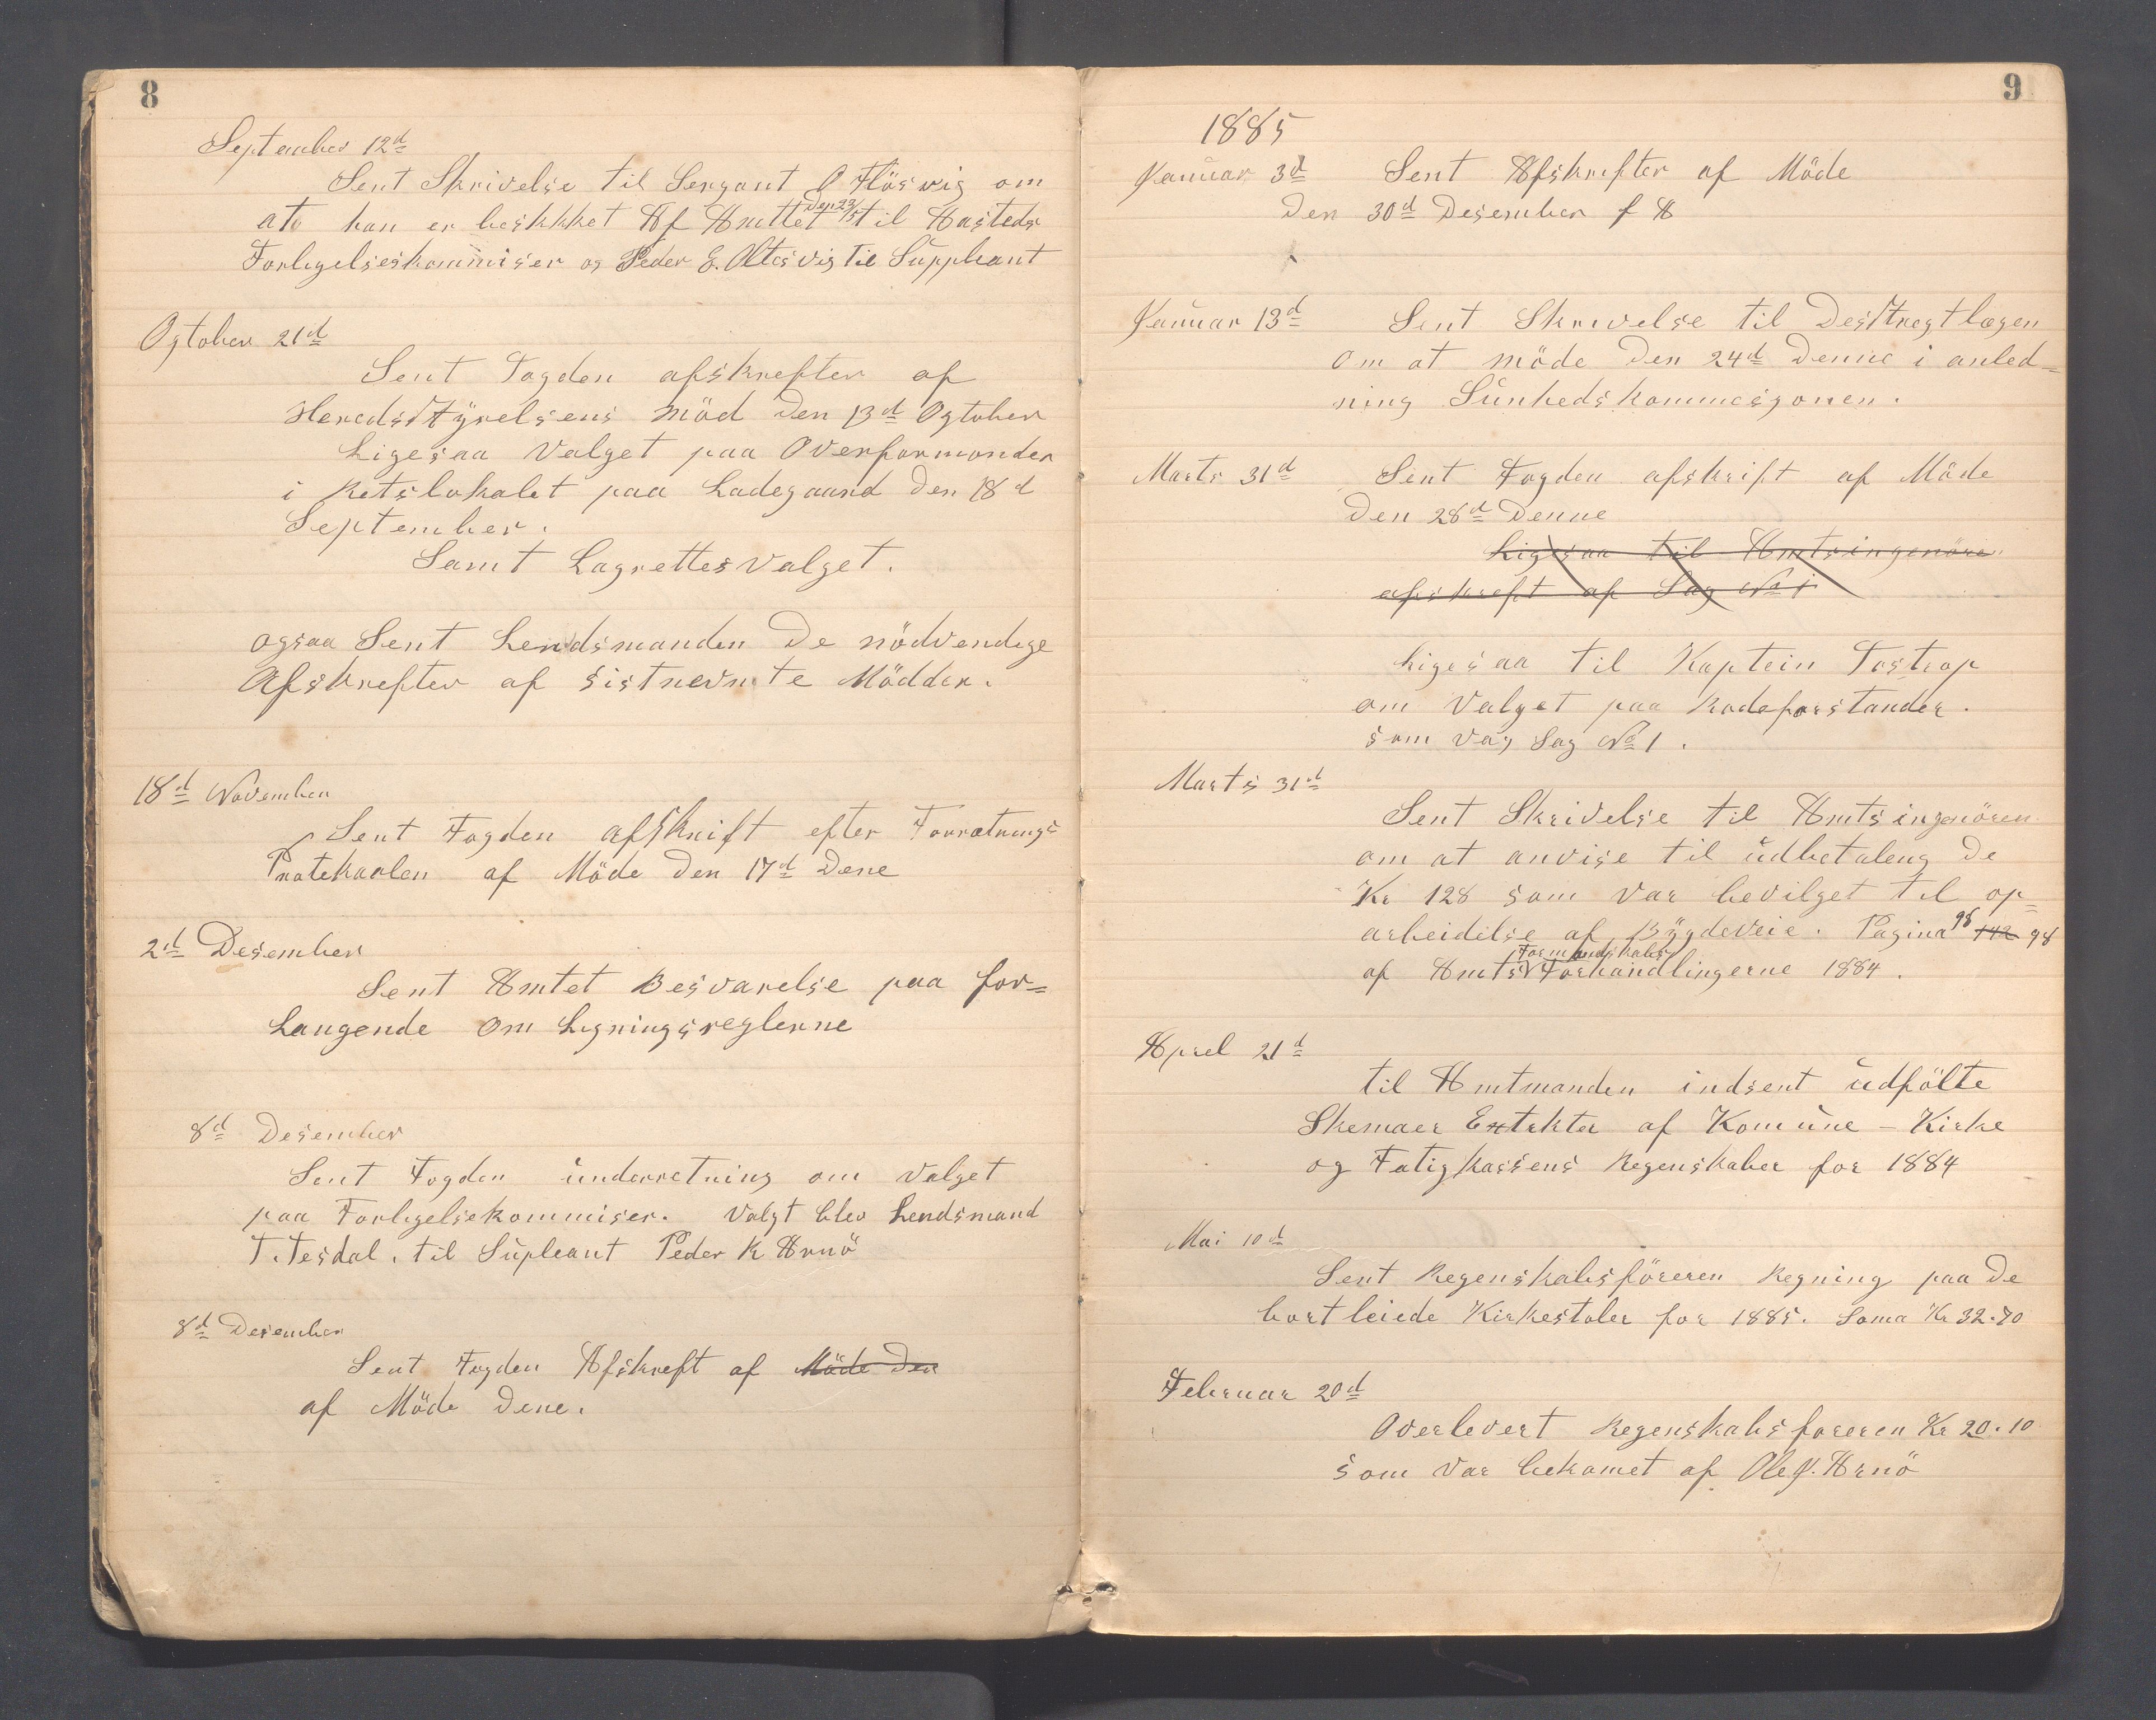 8
September 12d
Sent Skrivelse til Sergant O Flösvig om
ato han er beskkket Af Amttet den 23/5 til Aasteds
Forligelseskommiser og Peder E. Oltesvig Til Suppleant
Ogtober 21d
Sent Fogden afskrefter af
Heredsstÿrelsens möd den 13d Ogtober
Ligesaa Valget paa Overformonder
i Retslokalet paa Ladegaard Den 18d
September.
Samt Lagrettesvalget.
ogsaa Sent Lendsmanden De nödvendige
Afskrefter af sistnevnte Mödder.
18d November
Sent Fogden afskrift efter Forrætnings
Protekaalen af Möde Den 17d Dene
2d Desember
Sent Amtet Besvarelse paa for=
Langende om Ligningsreglerne
8d Desember
Sent Fogden underretning om Valget
paa Forligelsekommiser. Valgt blev Lendsmand
T. Tesdal. til Supleant Peder K Arnö
8d Desember
Sent Fogden Afskreft af Möde Den
af Möde Dene.
9
1885
Januar 3d Sent Afskrefter af Möde
Den 30d Desember f A
Januar 13d Sent Skrivelse til Desstregtlægen
om at möde Den 24d Denne i anled=
ning Sunhedskommesjonen.
Marts 31d Sent Fogden afskrift af Möde
Den 28d Denne
Ligesaa til Amtsingenören
afskreft af Sag No 1
Ligesaa til Kaptein Tostrop
om Valget paa Rodeforstander.
som var Sag No 1.
Marts 31d
Sent Skrivelse til Amtsingenören
om at anvise til udbetaleng De
Kr 128 som Var bevilget til op=
arbeidelse af Bÿgdeveie. Pagina 98 142 98
Formandskabs
af Amts Forhandlingerne 1884.
Aprel 21d
til Amtmanden indsent udfölte
Skemaer Extrkter af Komune - Kirke
og Fatigkassens Regenskaber for 1884
Mai 10d
Sent Regenskabsföreren Regning paa De
bortleiede Kirkestoler for 1885. Soma Kr 32.70
Februar 20d
Overlevert Regenskabsforeren Kr 20.10
som Var bekomet af Ole J. Arnö